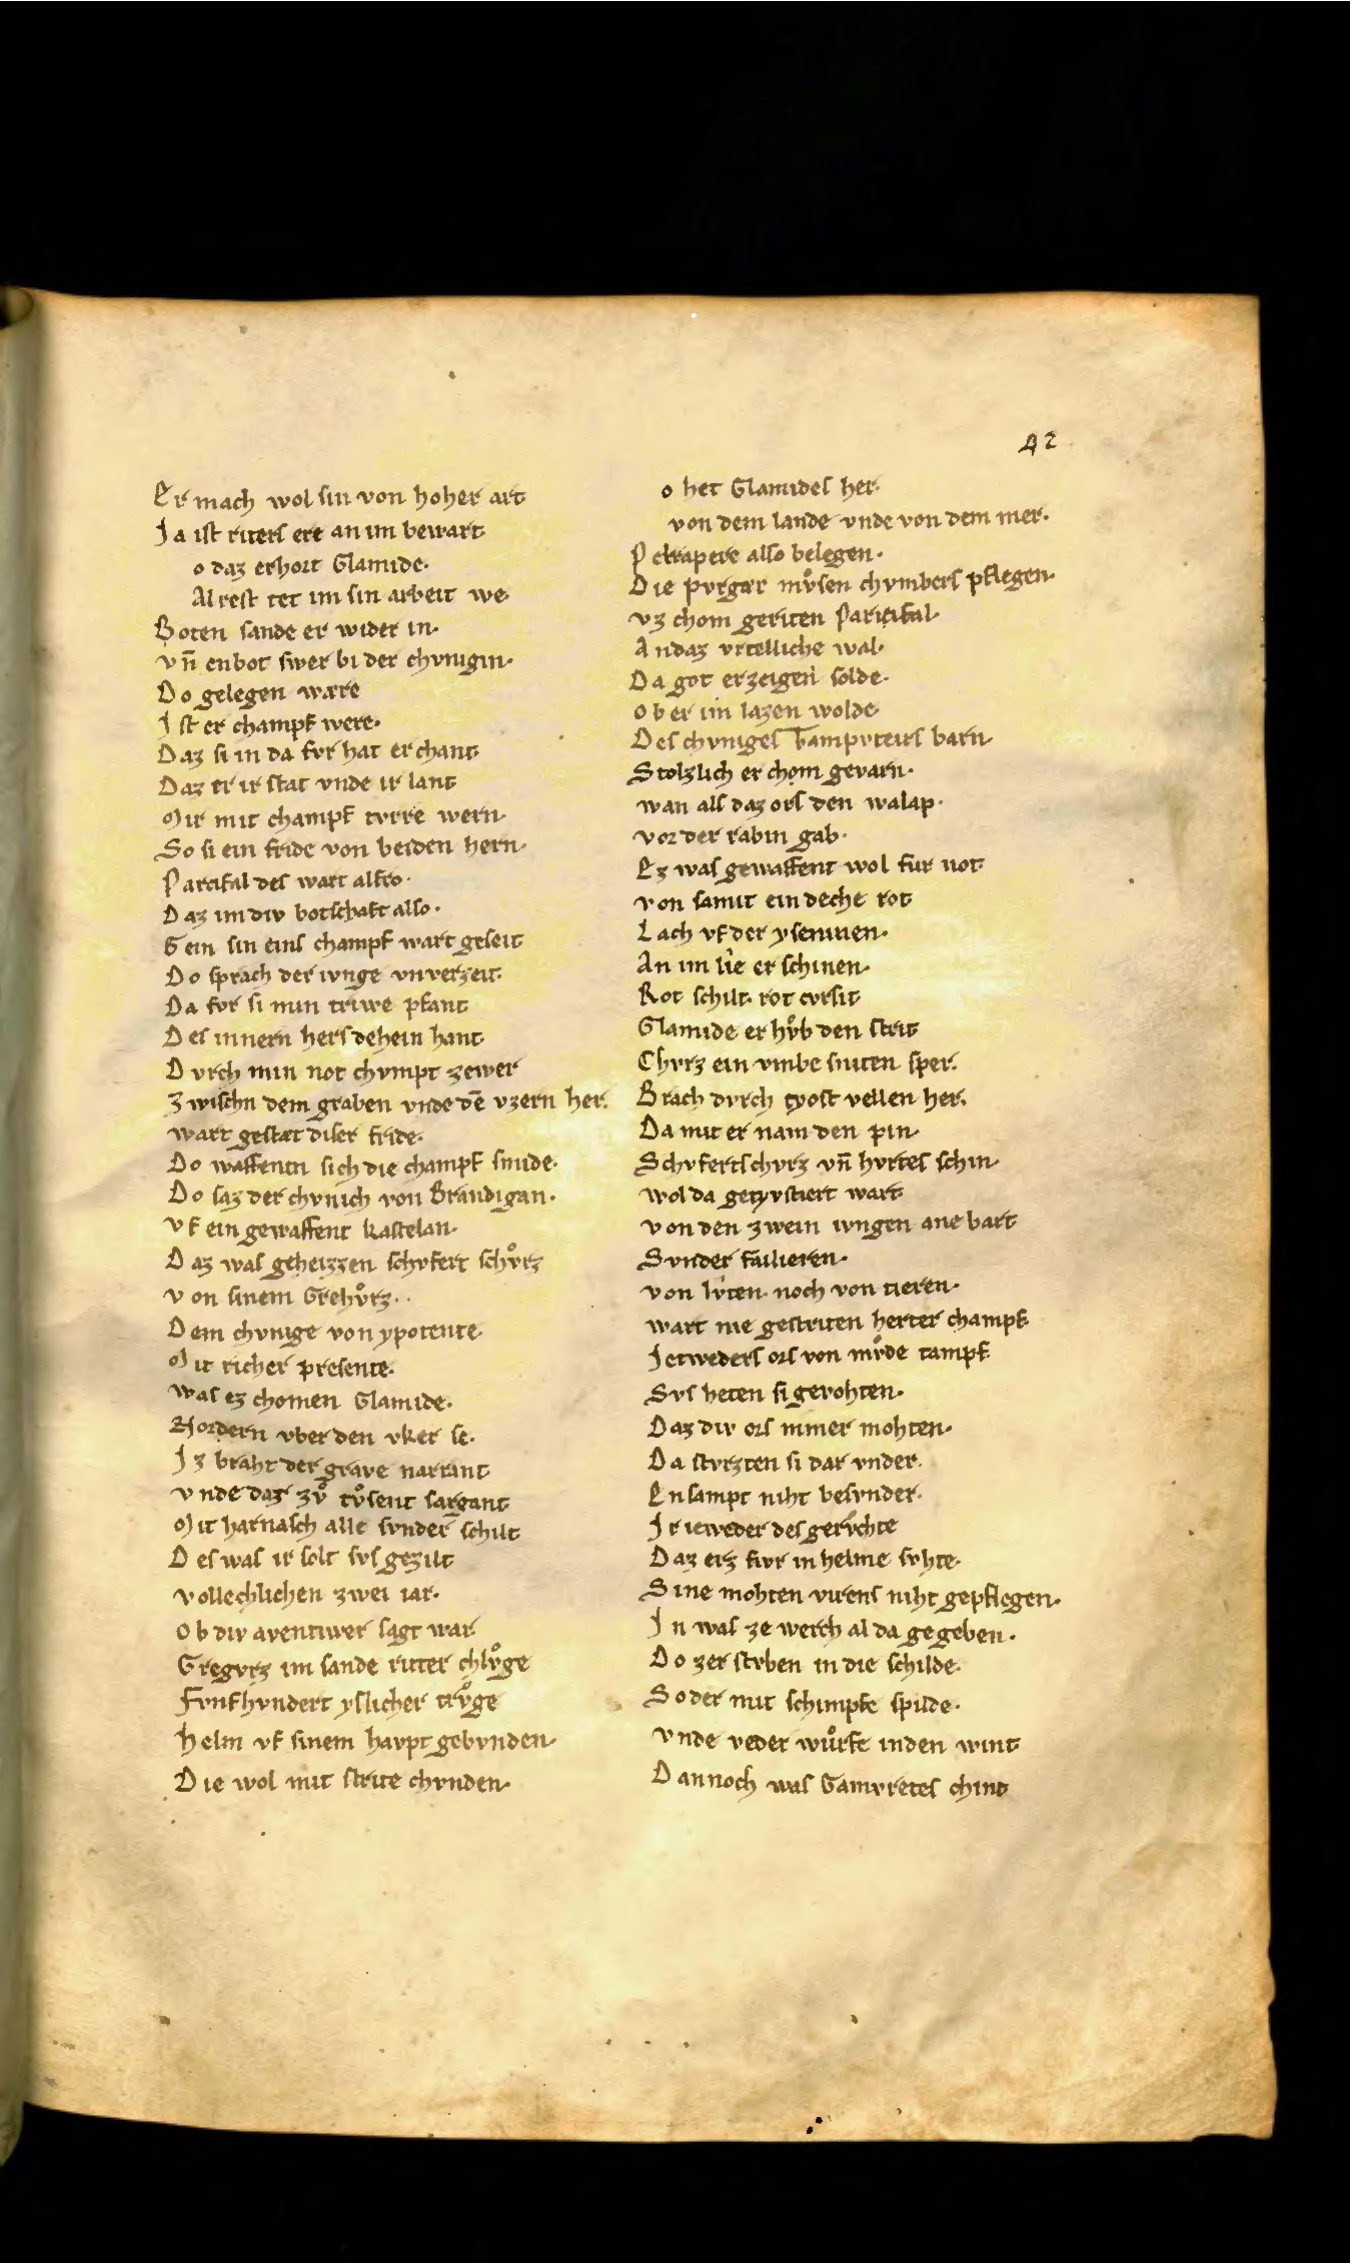 42
Er mach wol sin von hoher art
Ja ist riters ere an im bewart.
o daz erhort Glamide.
Al rest tet im sin arbeit we
Boten sande er wider in.
vn̄ enbot swer bi der chvnigin.
Do gelegen wære
Ist er champf were.
Daz si in da fvr hat erchant
Daz er ir stat vnde ir lant
Mir mit champf tvrre wern.
So si ein fride von beiden hern.
Parcifal des wart alfro.
Daz im div botschaft also.
Gein sin eins champf wart geseit
Do sprach der ivnge vnverzeit.
Da fvr si min triwe pfant
Des innern hers dehein hant.
Dvrch min not chvmpt zewer
Zwischn dem graben vnde dē vzern her.
wart gestæt diser fride.
Do waffentn sich die champf smide.
Do saz der chvnich von Brandigan.
vf ein gewaffent kastelan.
Daz was geheizzen schvfert schvͦrz
von sinem Grehvͦrz..
Dem chvnige von ypotente
Mit richer presente.
was ez chomen Glamide.
Nordern vber den vker se.
Iz braht der grave narrant
vnde daz zvͦ tvͦsent sargant
Mit harnasch alle svnder schilt
Des was ir solt svs gezilt
vollechlichen zwei iar.
Ob div aventiwer sagt war
Gregvrz im sande ritter chlvͦge
Fvnfhvndert yslicher trvͦge
Helm vf sinem havpt gebvnden.
Die wol mit strite chvnden.
o het Glamides her.
von dem lande vnde von dem mer.
Pelrapere also belegen.
Die pvrgær mvͦsen chvmbers pflegen.
vz chom geriten Parcifal.
An daz vrtelliche wal.
Da got erzeigen solde.
Ob er im lazen wolde
Des chvniges Tampvteirs barn.
Stolzlich er chom gevarn.
wan als daz ors den walap.
vor der rabin gab.
Ez was gewaffent wol fur not
von samit ein deche rot
Lach vf der ysеninen.
An im lie er schinen.
Rot schilt. rot cvrsit
Glamide er hvͦb den strit
Chvrz ein vmbe sniten sper.
Brach dvrch tyost vellen her.
Da mit er nam den pin.
Schvfertschvrz vn̄ hvrtes schin.
wol da getyvstiert wart.
von den zwein ivngen ane bart
Svnder failieren.
von lvten. noch von tieren.
wart nie gestriten herter champf.
Ietweders ors von mvͦde tampf.
Svs heten si gevohten.
Daz div ors nimer mohten.
Da stvrzten si dar vnder.
Ensampt niht besvnder.
Ir ieweder des gervchte
Daz erz fivr in helme svhte.
Sine mohten virens niht gepflegen.
In was ze werch al da gegeben.
Do zer stvben in die schilde.
So der mit schimpfe spilde.
vnde veder wuͦrfe in den wint
Dannoch was Gamvretes chind